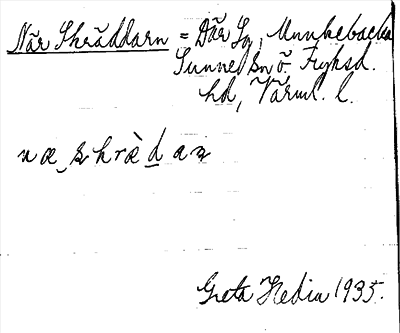 När Skräddarn = Där Sö, Munkebacka
Sunne sn ö. Fryksd.
hd, Värml. l.
Greta Hedin 1935.